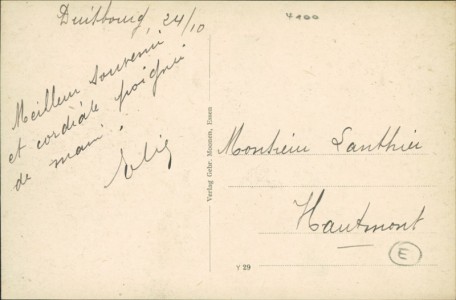 Duisbourg, 24/10
4100
Meilleur souvenir
et cordiale poignée
de main.
Elie
Verlag Gebr. Moenen, Essen
Monsieur Lanthier
Hautmont
E
Y 29